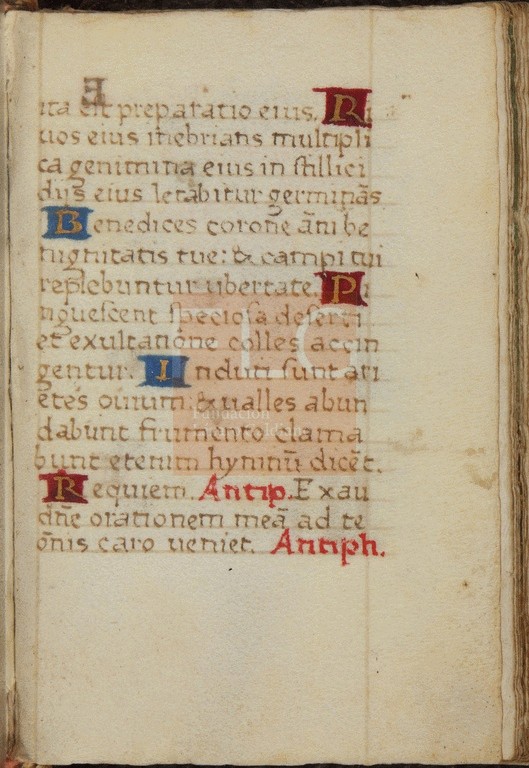 ita est preparatio eius. Ri
uos eius inebrians multipli
ca genimina eius in stillici
dijs eius letabitur germinās
Benedices corone āni be
nignitatis tue: & campi tui
replebuntur ubertate. Pi
nguescent speciosa deserti
et exultatione colles accin
gentur. Induti sunt ari
etes ouium & ualles abun
dabunt frumento clama
bunt etenim hymnū dicēt.
Requiem. Antip. Exau
dn̄e orationem meā ad te
om̄nis caro ueniet. Antiph.
FLG
Fundación